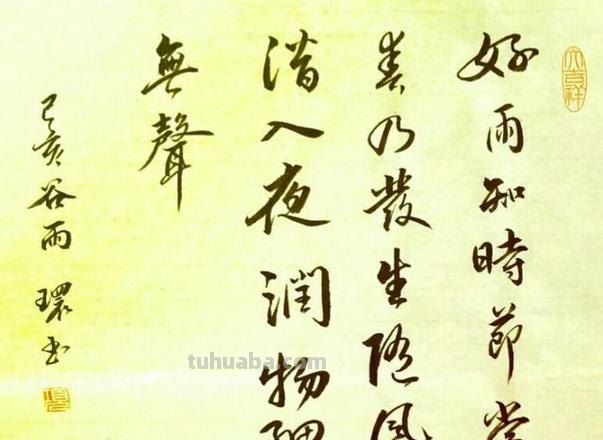 好雨知時節當
春乃發生隨風
潛入夜潤物細
無聲
己亥谷雨 環书
大吉祥
tuhuaba.com